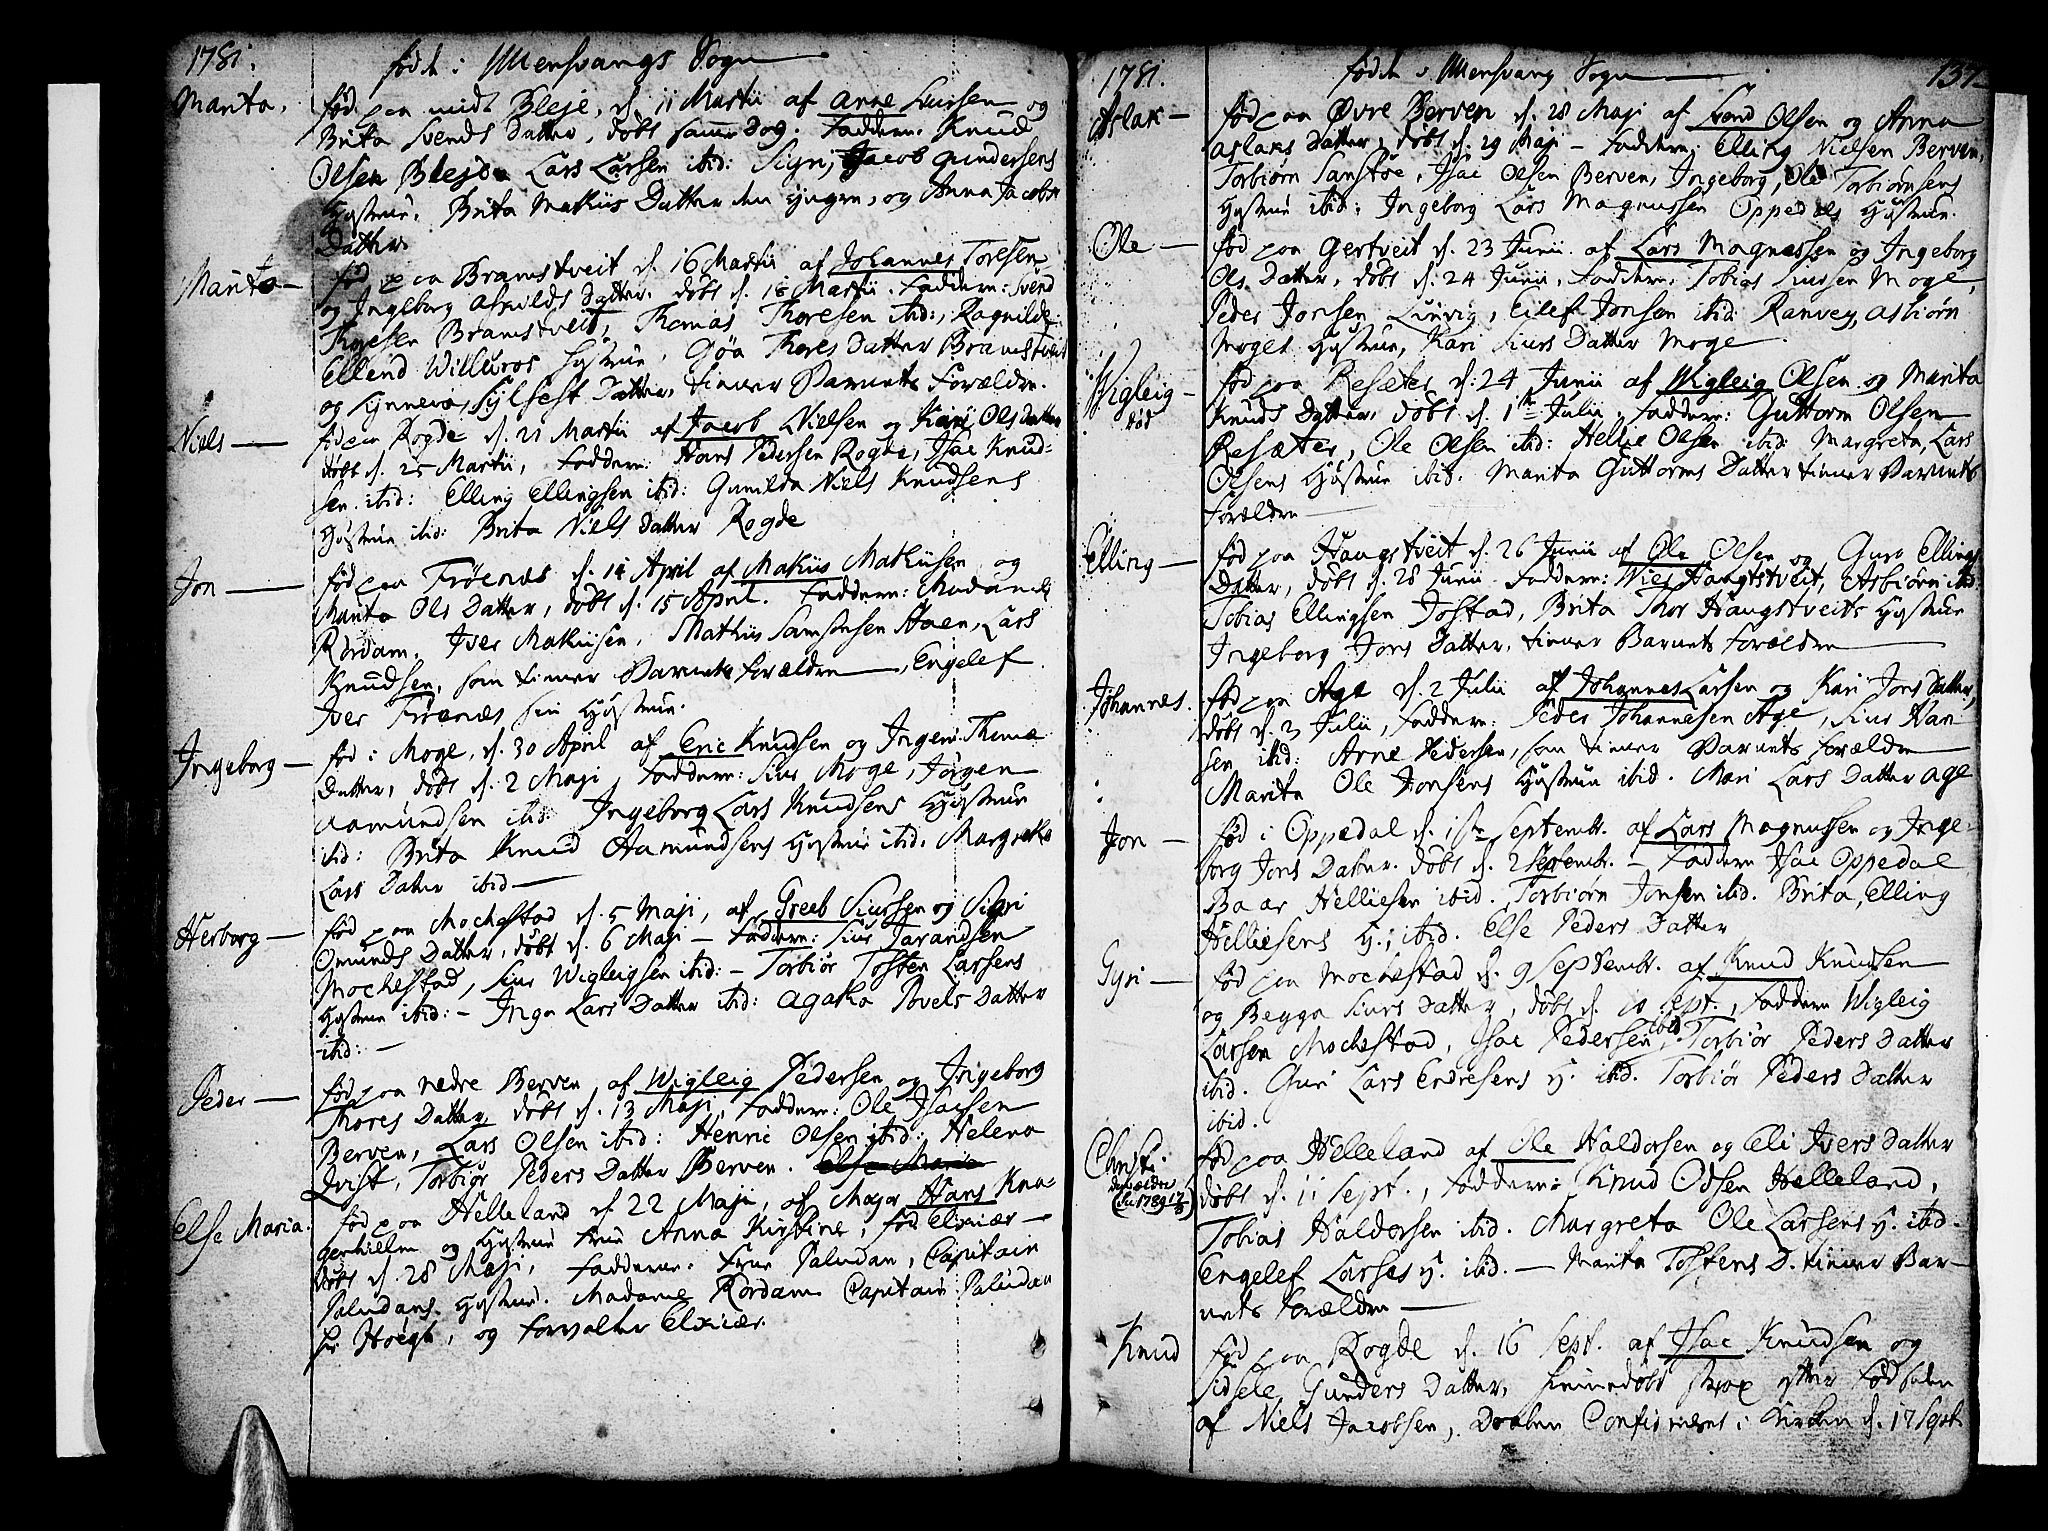 1781.
født i Ullensvangs Sogn
Marita.
fød paa midt Bleje, d. 11 Martii af Arne Siursen og
Brita Svends Datter, døbt samme dag. Faddere: Knud
Olsen Bleje Lars Larsen ibid: Sigri, Jacob Gundersens
Hustrue. Brita Matiis Datter den yngre, og Anna Jacobs
Datter.
Marita
fød paa Bramstveit d. 16 Martii af Johannes Toresen
og Ingeborg Datter. døbt d. 18 Martii. Faddere: Svend
Bramstveit, Thomas Thoresen ibid:, Ragnilde
Ellend Hustrue. Gøa Thores Datter Bramstveit
og Synneva Sylfest Datter, tiener Barnets Forældre.
Niels
fød paa Rogde d. 21 Martii af Jacob Nielsen og Kari Ols Datter
døbt d. 25 Martii, Faddere: Hans Pedersen Rogde, Isac Knud-
sen ibid: Elling Ellingsen ibid: Gunilda Niels Knudsens
Hustrue ibid: Brita Niels Datter Rogde
Jon
fød paa Frøenæs d. 14 April af Matiis Mathisen og
Marita Ols Datter, døbt d. 15 April. Faddere: Madame
Rördam. Iver Mathisen, Mathis Samsonsen Aaen, Lars
Knudsen, som tiener Barnets Forældre, Engelef
Iver Frøenæs sin Hustrue.
Ingeborg
fød i Moge, d. 30 April af Eric Knudsen og Inger
Datter, døbt d. 2 Maji, Faddere: Siur Moge, Jørgen
Aamundsen ibid: Ingeborg Lars Knudsens Hustrue
ibid: Brita Knud Aamundsens Hustrue ibid. Margreta
Lars Datter ibid
Herborg
fød paa Mochestad d. 5 Maji, af Greeb Siursen og Sigri
Omunds Datter, døbt d. 6 Maji - Faddere: Siur
Mochestad, Siur Wigleigsen ibid: - Torbiør Tosten Larsens
Hustrue ibid: - Inga Lars Datter ibid: Agatha Povels Datter
ibid: -
Peder
fød paa nedre Berven, af Wigleig Pedersen og Ingeborg
Thores Datter, døbt d. 13 Maji, Faddere: Ole Isacsen
Berven, Lars Olsen ibid: Henric Olsen ibid: Helena
Qvist, Torbiør Peders Datter Berven. Else Maria
Else Maria.
fød paa Helleland d. 22 Maji, af Major Hans Kna-
genhielm og Hustrue Frue Anna Kirstine, fød Elxnær
døbt d. 28 Maji, Faddere: Frue Paludan, Capitain
Paludans Hustrue. Madame Rördam Capitain Paludan
hr Høegh, og Forvalter Elxnær.
1781.
født i Ullensvang Sogn
137
Aslak
fød paa Øvre Berven d. 28 Maji af Svend Olsen og Anna
Aslaks Datter, døbt d. 29 Maji - Faddere: Elling Nielsen Berven,
Torbiørn Sanstøe, Isac Olsen Berven, Ingeborg, Ole Torbiørnsens
Hustrue ibid: Ingeborg Lars Magnussen Oppedals Hustrue.
Ole
fød paa Gertveit d. 23 Junii af Lars Magnussen og Ingeborg
Ols Datter, døbt d. 24 Junii, Faddere: Tobias Siursen Moge,
Peder Jonsen Linvig, Eilef Jonsen ibid: Ranvey, Asbiørn
Moges Hustrue, Kari Siurs Datter Moge.
Wigleig
død
fød paa Resæter d. 24 Junii af Wigleig Olsen og Marita
Knuds Datter, døbt d. 1te Julii, Faddere: Guttorm Olsen
Resæter, Ole Olsen ibid: Hellie Olsen ibid. Margreta, Lars
Olsens Hustrue ibid. Marita Guttorms Datter tiener Barnets
Forældre
Elling
fød paa Haugstveit d. 26 Junii af Ole Olsen og Guro Ellings
Datter, døbt d. 28 Junii Faddere: Niels Haugstveit, Asbiørn ibid.
Tobias Ellingsen Jostad, Brita Thor Haugstveits Hustrue
Ingeborg Jons Datter, tiener Barnets Forældre
Johannes.
fød paa Age d. 2 Julii af Johannes Larsen og Kari Jons Datter,
døbt d. 3 Julii, Faddere: Peder Johannesen Age, Siur Han-
sen ibid: Arne Pedersen, som tiener Barnets Forældre
Marita Ole Jonsens Hustrue ibid. Mari Lars Datter Age
Jon
fød i Oppedal d. 1ste Septembr. af Lars Magnussen og Inge-
borg Jons Datter. døbt d. 2 Septembr. - Faddere Isac Oppedal
Baar Helliesen ibid. Torbiørn Jonsen ibid. Brita, Elling
Helliesens H. ibid. Else Peders Datter
Gyri
fød paa Mochestad d. 9 Septembr. af Knud Knudsen
og Begga Siurs Datter, døbt d. 10 Sept., Faddere Wigleig
Larsen Mochestad, Isac Pedersen ibid, Torbiør Peders Datter
ibid. Guri Lars Endresens H. ibid. Torbiør Peders Datter
ibid.
Christi.
fød paa Helleland af Ole Haldorsen og Eli Ivers Datter
døbt d. 11 Sept., Faddere: Knud Odsen Helleland,
Tobias Haldorsen ibid. Margreta Ole Larsens H. ibid.
Engelef Larses H. ibid. - Marita Tostens D. tiener Bar-
nets Forældre
Knud
fød paa Rogde d. 16 Sept. af Isac Knudsen og
Sidsele Gunders Datter, hiemedøbt strax efter Fødselen
af Niels Jacobsen, Daaben Confirmeret i Kirken d. 17 Sept.